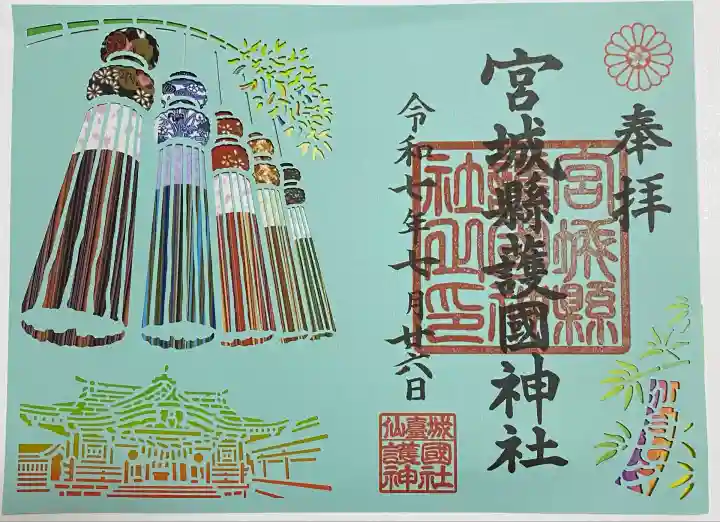 奉拝
宮城縣護國神社
令和七年七月廿六日
宮城縣
社之印
仙臺城
護國
神社